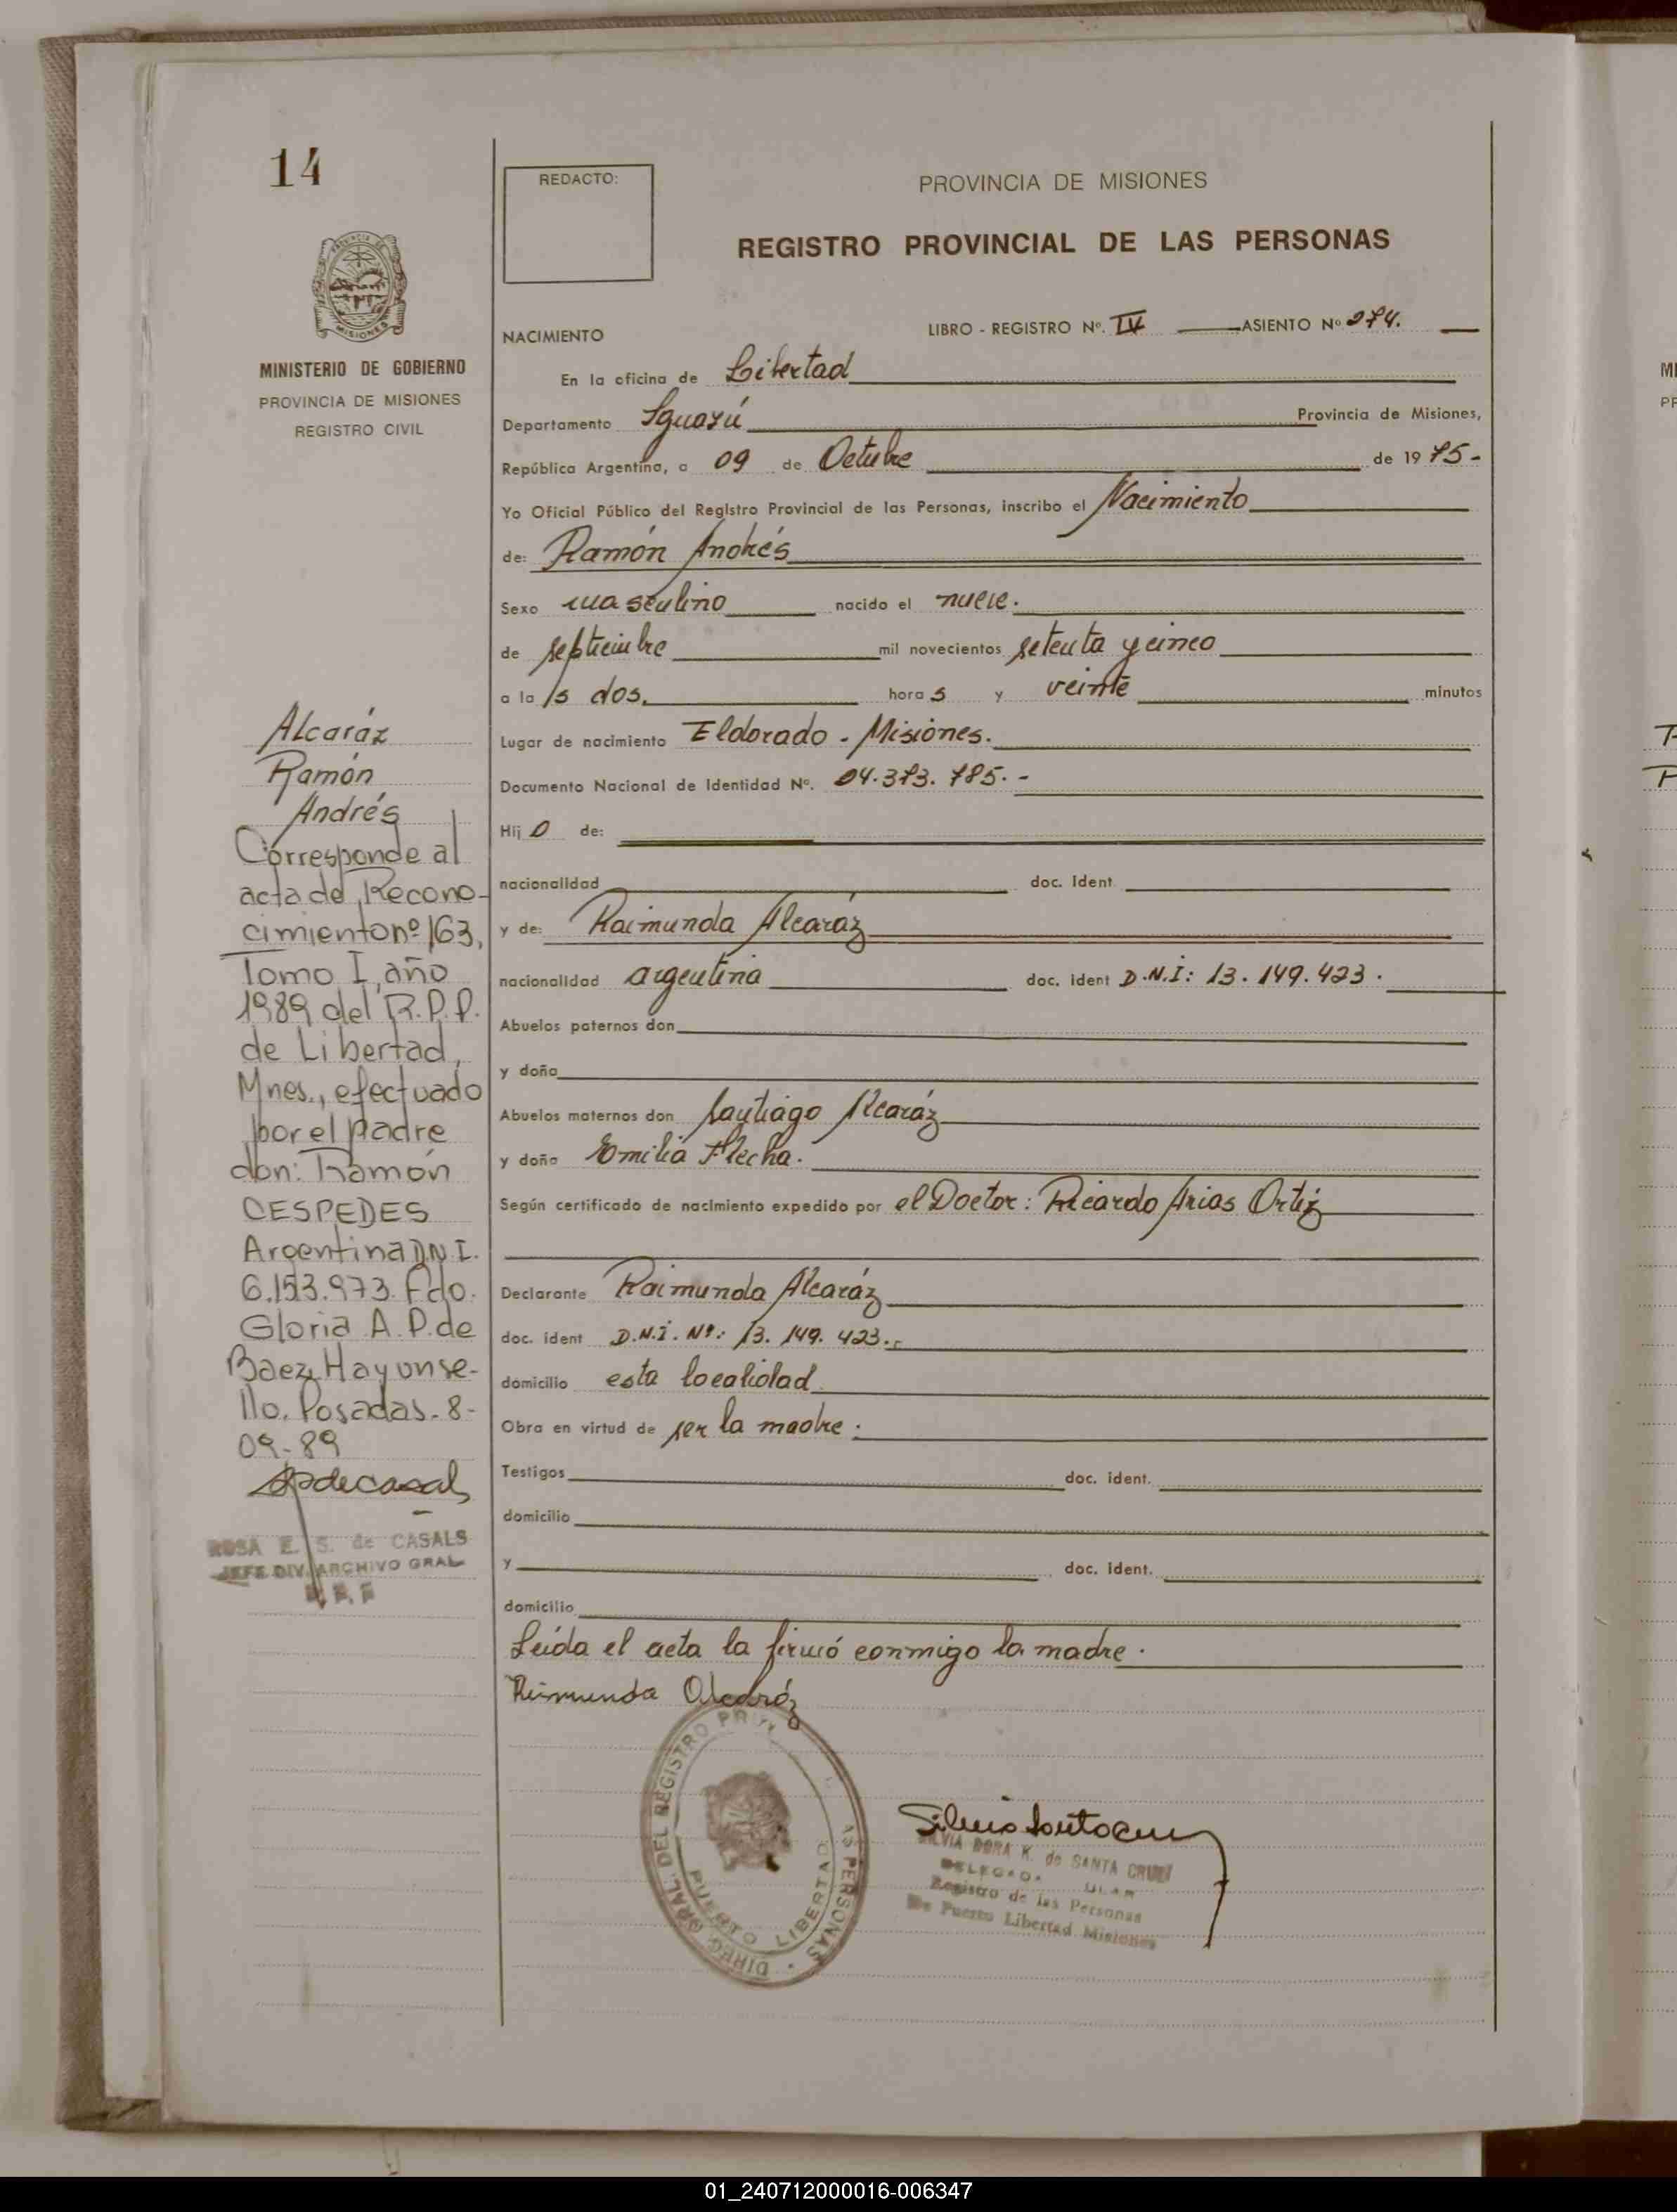 14
MINISTERIO DE GOBIERNO
PROVINCIA DE MISIONES
REGISTRO CIVIL
Alcaráz
Ramón
Andrés
Corresponde al
acta de Recono-
cimiento nº 163,
Tomo I, año
1989 del R.P.P.
de Libertad,
Mnes., efectuado
por el padre
don: Ramón
CESPEDES
Argentina D.N.I.
6.153.973. Fdo.
Gloria A. P. de
Baez, Hay un se-
llo. Posadas. 8-
09-89
ROSA E. S. de CASALS
JEFE DIV. ARCHIVO GRAL
REDACTO:
PROVINCIA DE MISIONES
REGISTRO PROVINCIAL DE LAS PERSONAS
NACIMIENTO LIBRO - REGISTRO Nº. IV ASIENTO Nº 274.
En la oficina de Libertad
Departamento Iguazú Provincia de Misiones,
República Argentina, a 09 de Octubre de 1975-
Yo Oficial Público del Registro Provincial de las Personas, inscribo el Nacimiento
de: Ramón Andrés
Sexo masculino nacido el nueve.
de septiembre mil novecientos setenta y cinco
a las dos. horas y veinte minutos
Lugar de nacimiento Eldorado - Misiones.
Documento Nacional de Identidad Nº. 24.373.785.-
Hijo de:
nacionalidad doc. ident.
y de: Raimunda Alcaráz
nacionalidad argentina doc. ident D.N.I: 13.149.423.
Abuelos paternos don
y doña
Abuelos maternos don Santiago Alcaráz
y doña Emilia Flecha.
Según certificado de nacimiento expedido por el Doctor: Ricardo Arias Ortiz
Declarante Raimunda Alcaráz
doc. ident D.N.i. Nº: 13.149.423.-
domicilio esta localidad
Obra en virtud de ser la madre.
Testigos doc. ident.
domicilio
y doc. ident.
domicilio
Leída el acta la firmó conmigo la madre.
Reimunda Alcaráz
DIREC. GRAL. DEL REGISTRO PROV. PERSONAS
PUERTO LIBERTAD
SILVIA DORA K. de SANTA CRUZ
Registro de las Personas
De Puerto Libertad Misiones
01_240712000016-006347